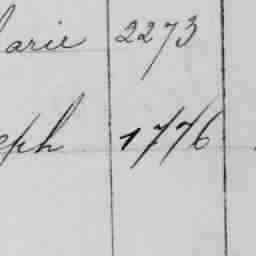 arie 2273
eph 1776